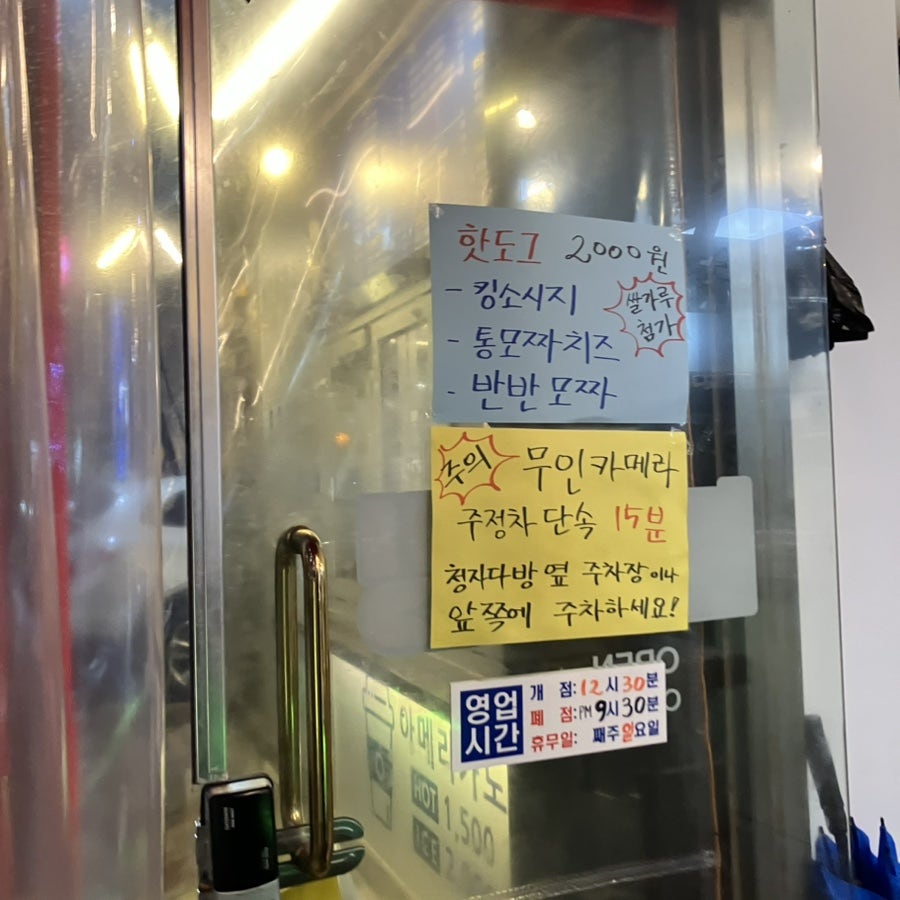 핫도그 2000원
- 킹소시지
- 통모짜치즈
- 반반모짜
쌀가루
첨가
주의 무인카메라
주정차단속 15분
청자다방 옆 주차장이나
앞쪽에 주차하세요!
OPEN
영업
시간
개 점: 12시 30분
폐 점: PM 9시 30분
휴무일: 째주 일요일
아메리카노
HOT 1,500
ICE